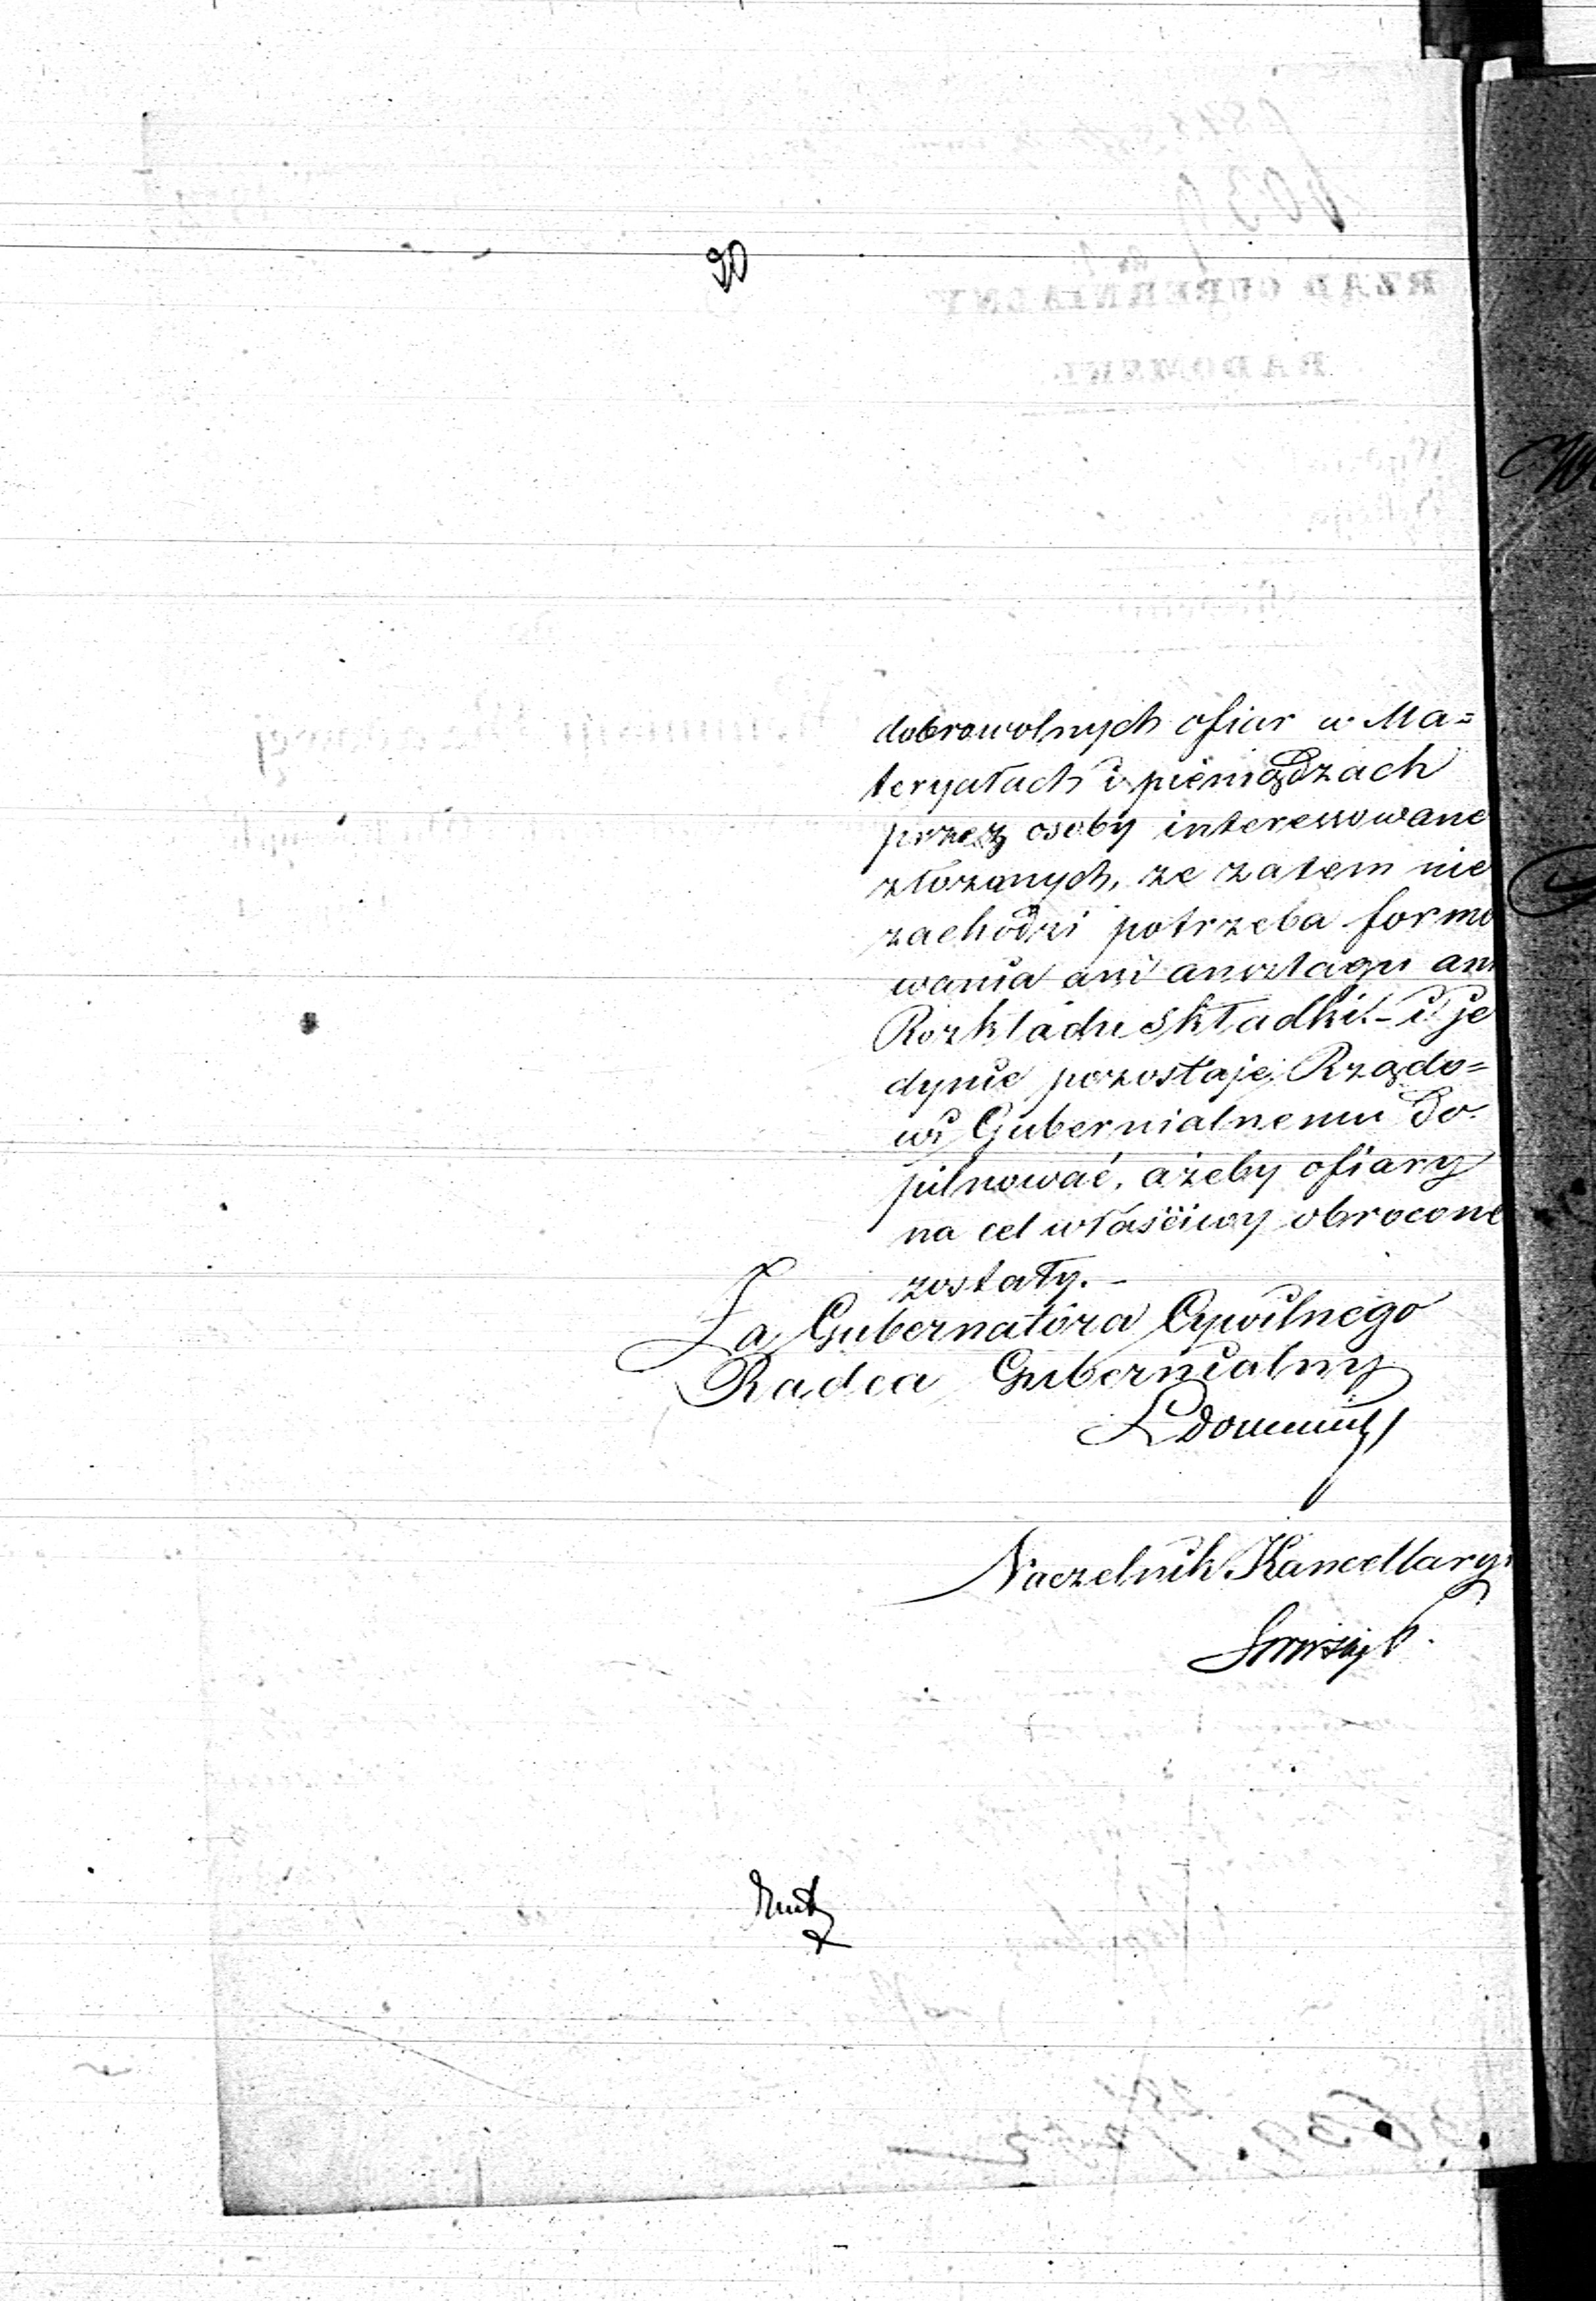 dobrowolnych ofiar w Ma=
teryałach i pieniądzach
przez osoby interessowane
złożonych, że zatem nie
zachodzi potrzeba formo
wania ani anszlagu ani
Rozkładu składki. - i je
dynie pozostaje Rządo=
wi Gubernialnemu do
pilnować, ażeby ofiary
na cel właściwy obrocone
zostały. -
Za Gubernatora Cywilnego
Radca Gubernialny
Naczelnik Kancellaryi